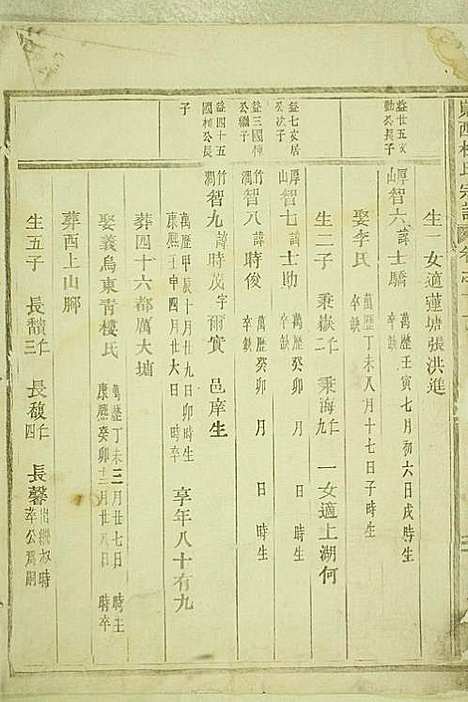 生一女適蓮塘張洪進
益廿五文
勳公長子
厚山智六諱士驕 萬歷壬寅七月初六日戌時生
卒缺
娶李氏 萬歷丁未八月十七日子時生
卒缺
生二子 秉嶽仁二 秉海仁九 一女適上湖何
益七文居
公次子
厚山智七諱士助 萬歷癸卯 月 日 時生
卒缺
益三國棟
公繼子
竹澗智八諱時俊 萬歷癸卯 月 日 時生
卒缺
益四十五
國楨公長
子
竹澗智九諱時茂字爾實 邑庠生
萬歷甲辰十月廿九日卯時生
康熙壬申四月廿六日 時卒 享年八十有九
葬四十六都厲大塘
娶義烏東青樓氏 萬歷丁未三月廿七日 時生
康熙癸卯十二月廿八日 時卒
葬酉上山腳
生五子 長馥仁三 長馥仁四 長馨出繼叔時
莘公爲嗣